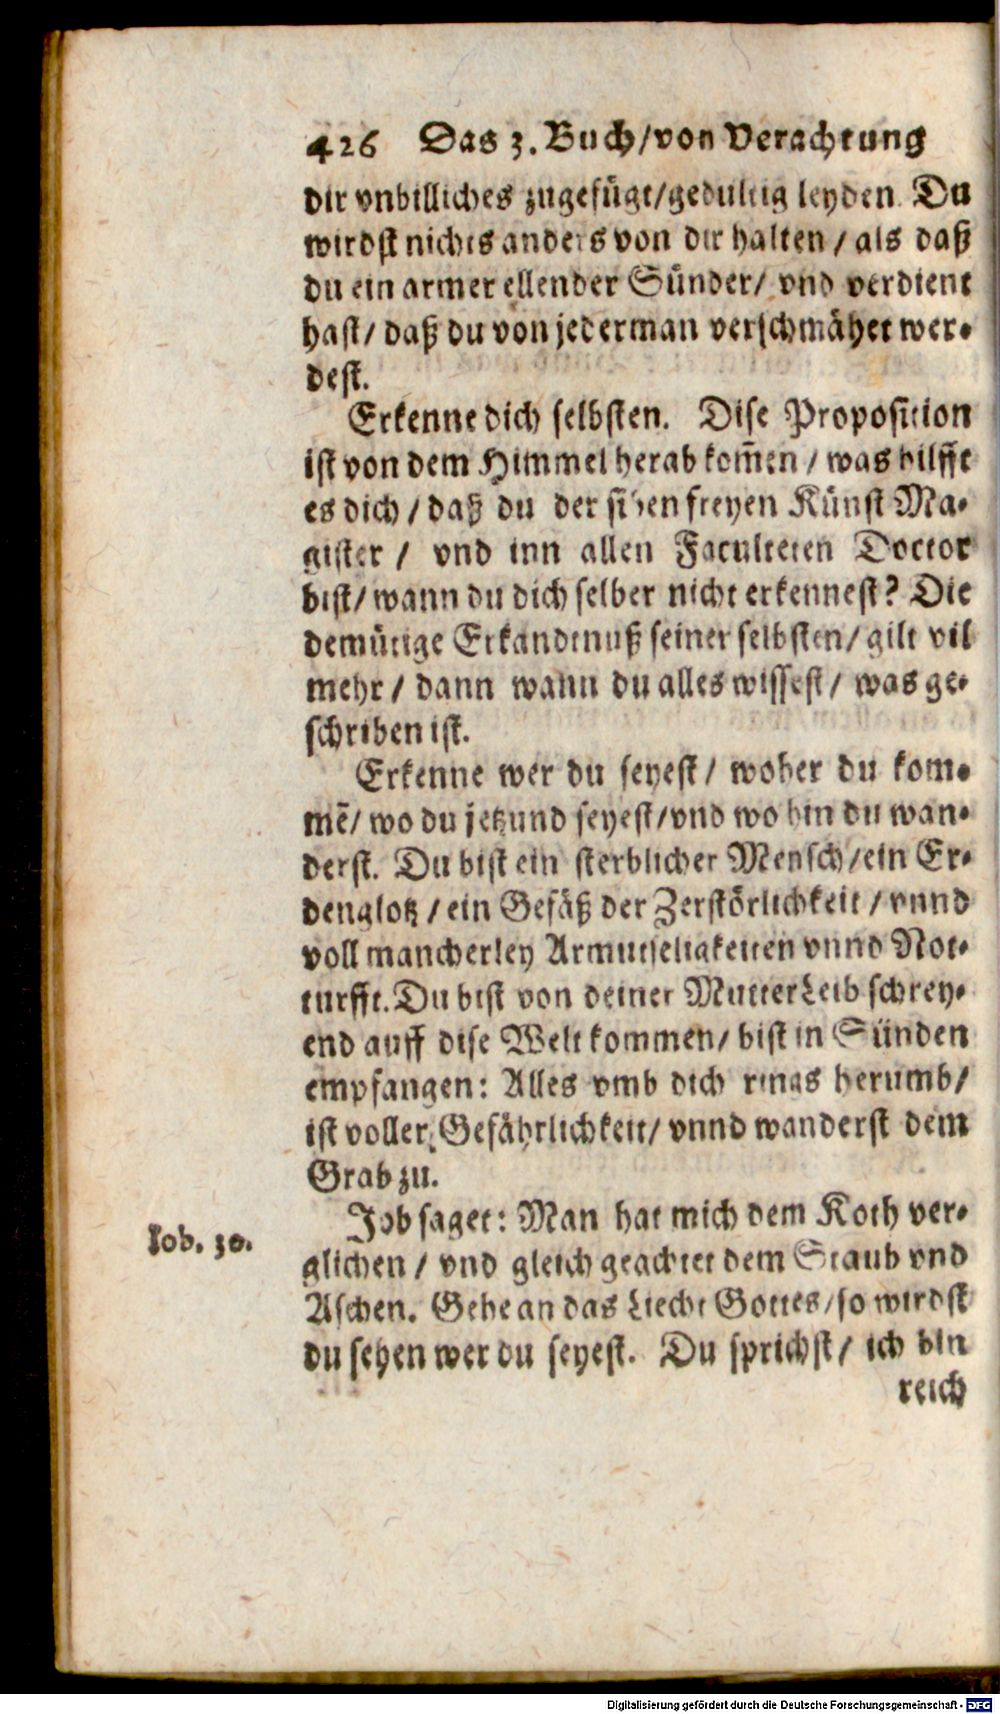 426 Das 3. Buch/von Verachtung
dir vnbilliches zugefügt/gedultig leyden. Du
wirdst nichts anders von dir halten / als daß
du ein armer ellender Sünder/ vnd verdient
hast/ daß du von jederman verschmähet wer-
dest.
Erkenne dich selbsten. Dise Proposition
ist von dem Himmel herab kom̃en / was hilfft
es dich / daß du der siben freyen Künst Ma-
gister / vnd inn allen Faculteten Doctor
bist/ wann du dich selber nicht erkennest? Die
demütige Erkandtnuß seiner selbsten/ gilt vil
mehr / dann wann du alles wissest / was ge-
schriben ist.
Erkenne wer du seyest / woher du kom-
mẽ/ wo du jetzund seyest/vnd wo hin du wan-
derst. Du bist ein sterblicher Mensch/ein Er-
denglotz / ein Gefäß der Zerstörlichkeit / vnnd
voll mancherley Armutseligkeiten vnnd Not-
turfft. Du bist von deiner Mutter Leib schrey-
end auff dise Welt kommen/ bist in Sünden
empfangen: Alles vmb dich rings herumb/
ist voller Gefährlichkeit/ vnnd wanderst dem
Grab zu.
Job saget: Man hat mich dem Koth ver-
Iob. 30.
glichen / vnd gleich geachtet dem Staub vnd
Aschen. Gehe an das Liecht Gottes/so wirdst
du sehen wer du seyest. Du sprichst/ ich bin
reich
Digitalisierung gefördert durch die Deutsche Forschungsgemeinschaft - DFG